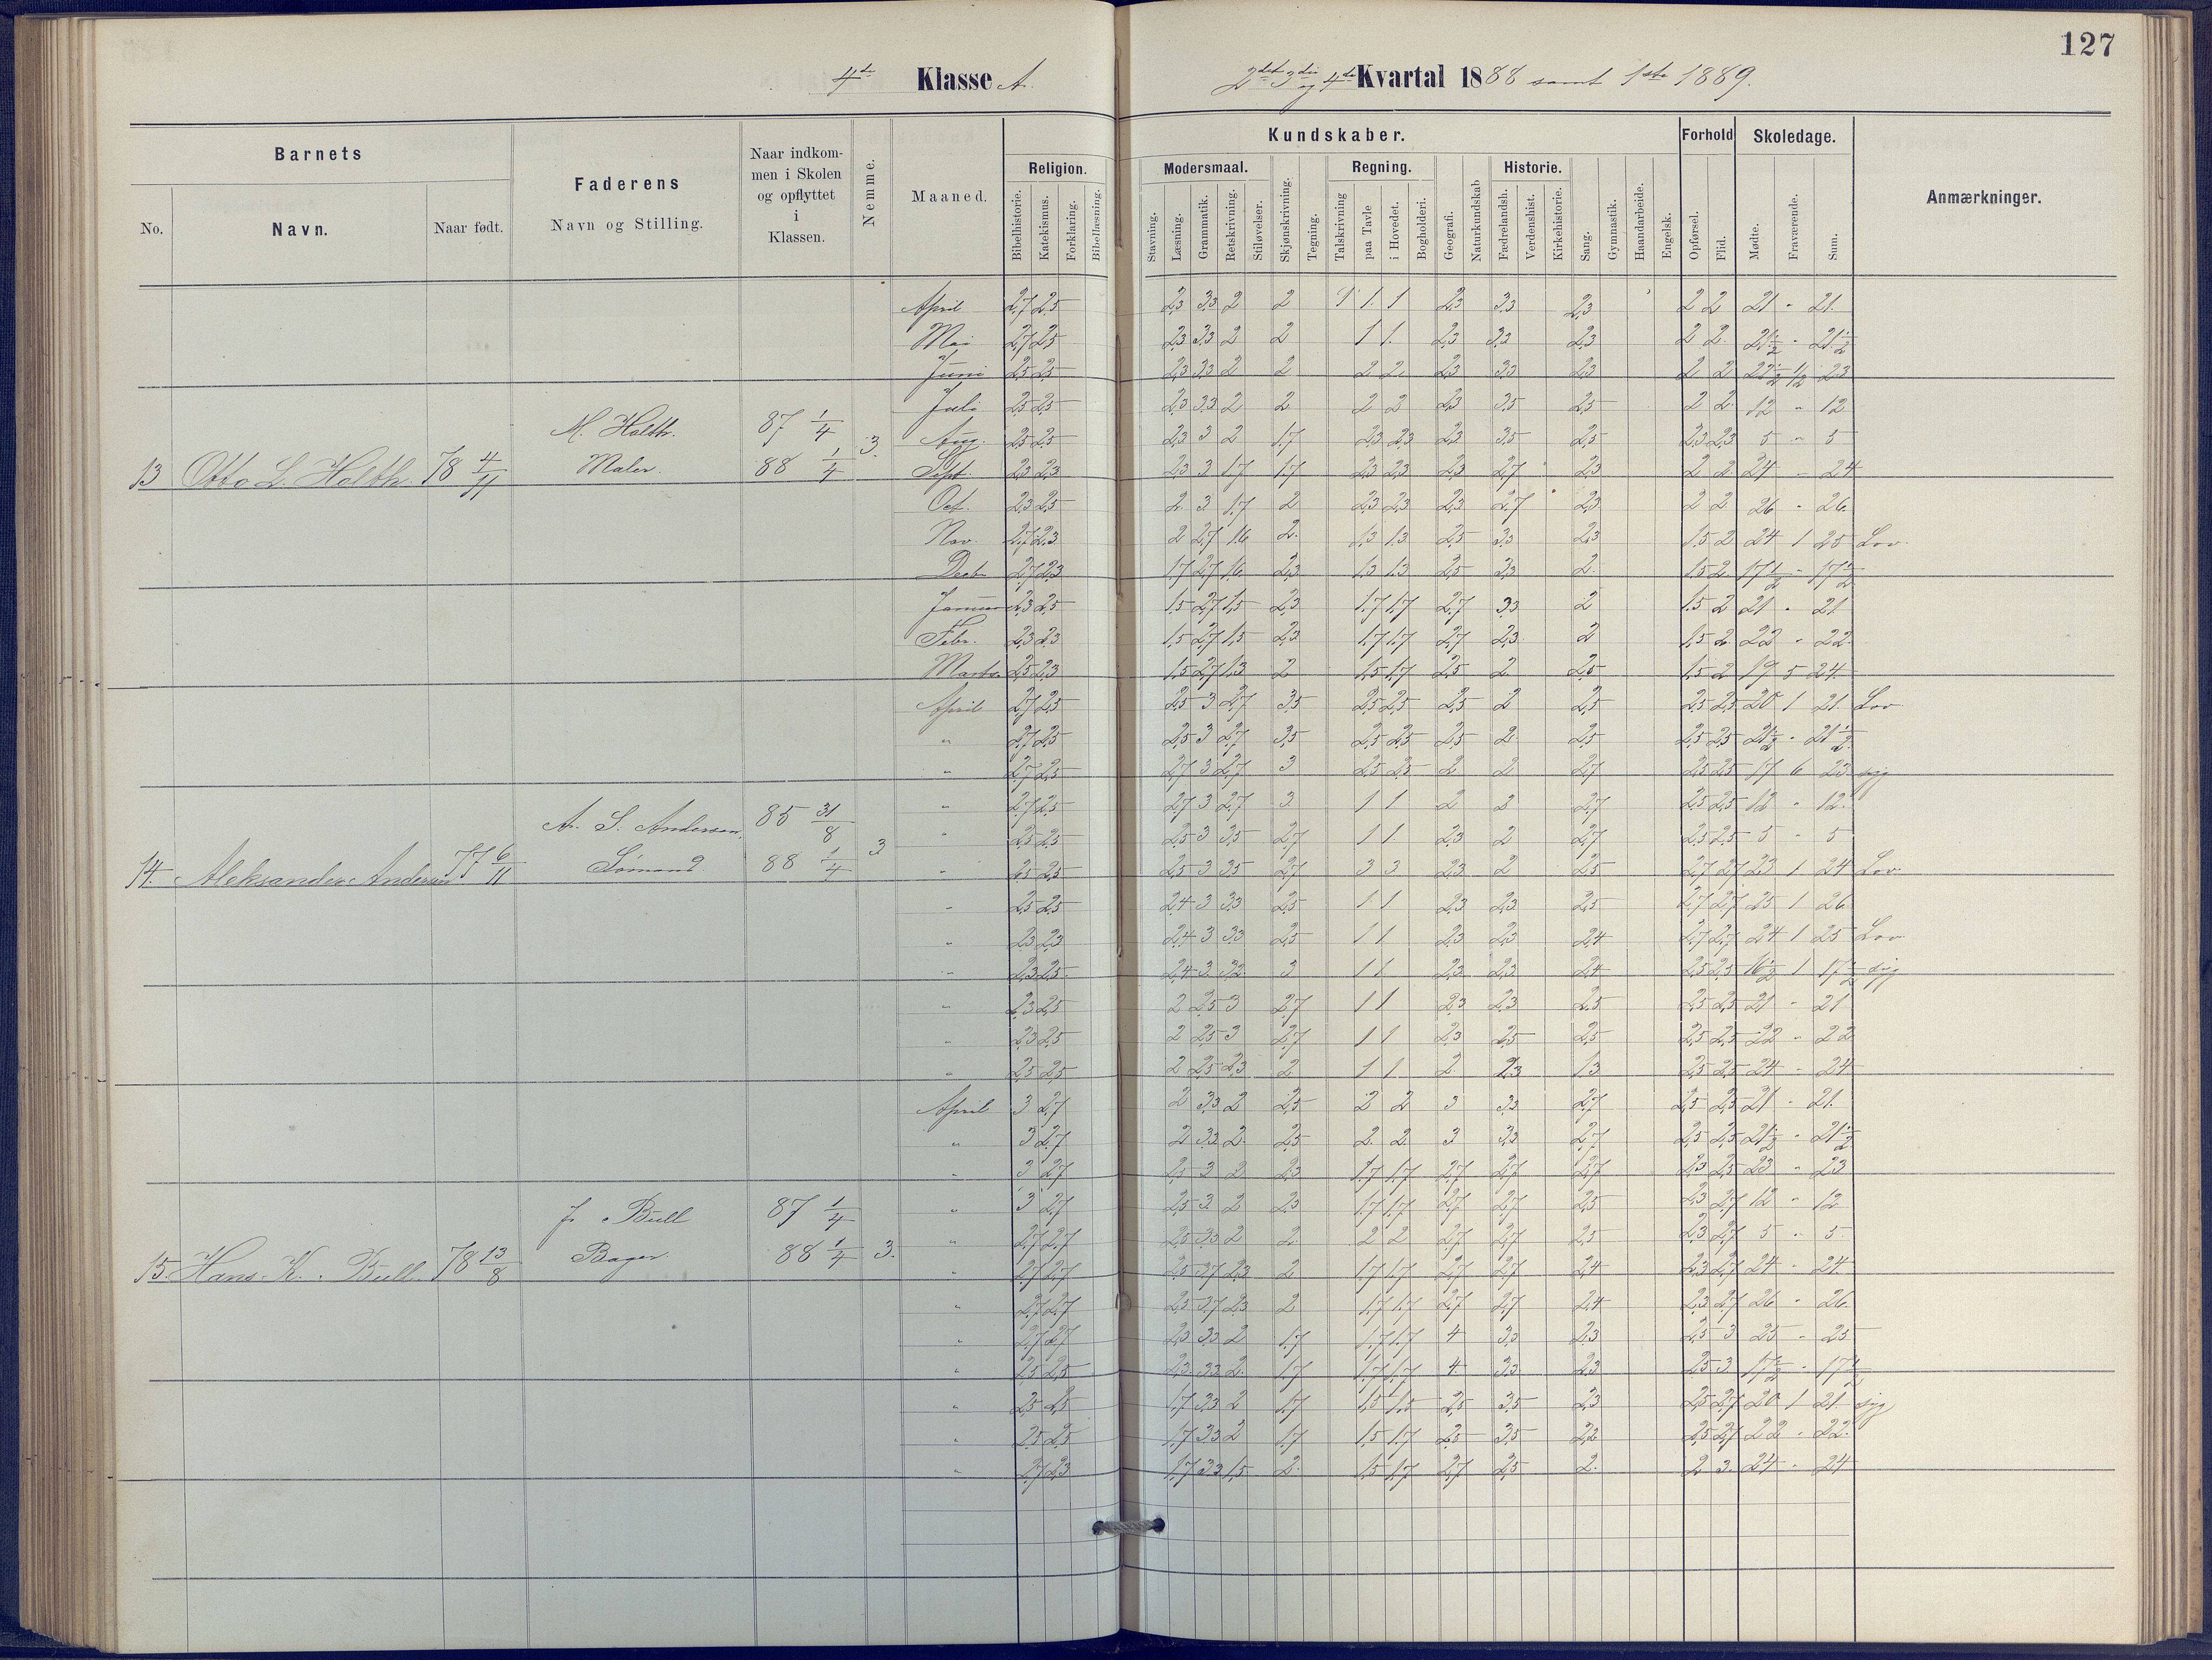 127
4de Klasse A.
2det 3die og 4de Kvartal 1888 samt 1ste 1889.
Barnets
No.
Navn.
Naar født.
Faderens
Navn og Stilling.
Naar indkom-
men i Skolen
og opflyttet
i
Klassen.
Nemme.
Maaned.
Kundskaber.
Religion.
Bibelhistorie.
Katekismus.
Forklaring.
Bibellæsning.
Modersmaal.
Stavning.
Læsning.
Grammatik.
Retskrivning.
Stiløvelser.
Skjønskrivning.
Tegning.
Regning.
Talskrivning
paa Tavle
i Hovedet.
Bogholderi.
Geografi.
Naturkundskab
Historie.
Fædrelandsh.
Verdenshist.
Kirkehistorie.
Sang.
Gymnastik.
Haandarbeide.
Engelsk.
Forhold
Opførsel.
Flid.
Skoledage.
Mødte.
Fraværende.
Sum.
Anmærkninger.
April 2,7 2,5 2,3 3,3 2 2 1 1 1 2,3 3,3 2,3 2 2 21 " 21
Mai 2,7 2,5 2,3 3,3 2 2 1 1 2,3 3,3 2,3 2 2 21½ " 21½
Juni 2,5 2,5 2,3 3,3 2 2 2 2 2,3 3,3 2,3 2 2 22½ ½ 23
Juli 2,5 2,5 2,3 3,3 2 2 2 2 2,3 3,5 2,5 2 2 12 " 12
M. Holth. 87 1/4 3.
Aug. 2,5 2,5 2,3 3 2 1,7 2,3 2,3 2,3 3,5 2,5 2,3 2,3 5 " 5
13 Otto L. Holth. 78 4/11 Maler. 88 1/4
Sept. 2,3 2,3 2,3 3 1,7 1,7 2,3 2,3 2,3 2,7 2,3 2 2 24 " 24
Oct. 2,3 2,5 2 3 1,7 2 2,3 2,3 2,3 2,7 2,3 2 2 26 " 26
Nov. 2,7 2,3 2 2,7 1,6 2 1,3 1,3 2,5 3,3 2,3 1,5 2 24 1 25 Lov.
Decbr 2,7 2,3 1,7 2,7 1,6 2,3 1,3 1,3 2,5 2,3 2 1,5 2 17½ " 17½
Januar 2,3 2,5 1,5 2,7 1,5 2,3 1,7 1,7 2,7 3,3 2 1,5 2 21 " 21
Febr. 2,3 2,3 1,5 2,7 1,5 2,3 1,7 1,7 2,7 2,3 2 1,5 2 22 " 22
Marts 2,5 2,3 1,5 2,7 1,3 2 1,5 1,7 2,5 2 2,5 1,5 2 19 5 24
April 2,7 2,5 2,5 3 2,7 3,5 2,5 2,5 2,5 2 2,5 2,5 2,5 20 1 21 Lov
" 2,7 2,5 2,5 3 2,7 3,5 2,5 2,5 2,5 2 2,5 2,5 2,5 21½ " 21½
" 2,7 2,5 2,7 3 2,7 3 2,5 2,5 2 2 2,7 2,5 2,5 17 6 23 syg
" 2,7 2,5 2,7 3 2,7 3 1 1 2 2 2,7 2,5 2,5 12 " 12
A. S. Andersen, 85 31/8 3
" 2,5 2,5 2,5 3 3,5 2,7 1 1 2,3 2 2,7 2,5 2,5 5 " 5
14. Aleksander Andersen 77 6/11 Sømand. 88 1/4
" 2,5 2,5 2,5 3 3,5 2,7 3 3 2,3 2 2,5 2,7 2,7 23 1 24 Lov
" 2,5 2,5 2,4 3 3,3 2,5 1 1 2,3 2,3 2,5 2,7 2,7 25 1 26
" 2,3 2,3 2,4 3 3,3 2,5 1 1 2,3 2,3 2,4 2,7 2,7 24 1 25 Lov
" 2,3 2,5 2,4 3 3,2 3 1 1 2,3 2,3 2,4 2,5 2,5 16½ 1 17½ syg
" 2,3 2,5 2 2,5 3 2,7 1 1 2,3 2,3 2,5 2,5 2,5 21 " 21
" 2,3 2,5 2 2,5 3 2,7 1 1 2,3 2,5 2,5 2,5 2,5 22 " 22
" 2,5 2,5 2 2,5 2,3 2 1 1 2 2,3 1,3 2,5 2,5 24 " 24
April 3 2,7 2 3,3 2 2,5 2 2 3 3,3 2,7 2,5 2,5 21 " 21
" 3 2,7 2 3,3 2 2,5 2 2 3 3,3 2,7 2,5 2,5 21½ " 21½
" 3 2,7 2,5 3 2 2,3 1,7 1,7 2,7 2,7 2,7 2,3 2,5 23 " 23
" 3 2,7 2,5 3 2 2,3 1,7 1,7 2,7 2,7 2,5 2,3 2,7 12 " 12
J. Bull 87 1/4
" 2,7 2,7 2,5 3,3 2 2 2 2 2,7 2,7 2,5 2,3 2,7 5 " 5
15. Hans K. Bull. 78 13/8 Bager. 88 1/4 3.
" 2,7 2,7 2,5 3,7 2,3 2 1,7 1,7 2,7 2,7 2,4 2,3 2,7 24 " 24
" 2,7 2,7 2,5 3,7 2,3 2 1,7 1,7 2,7 2,7 2,4 2,3 2,7 26 " 26
" 2,7 2,7 2,3 3,3 2 1,7 1,7 1,7 4 3,3 2,3 2,5 3 25 " 25
" 2,5 2,5 2,3 3,3 2 1,7 1,7 1,7 4 3,3 2,3 2,5 3 17½ " 17½
" 2,5 2,5 1,7 3,3 2 1,7 1,5 1,5 2,5 3,5 2,3 2,5 2,7 20 1 21 syg
" 2,5 2,5 1,7 3,3 2 1,7 1,5 1,7 2,5 3,5 2,2 2,5 2,7 22 " 22
" 2,7 2,3 1,7 3,3 1,5 2 1,5 1,7 2,7 2,5 2 2 3 24 " 24